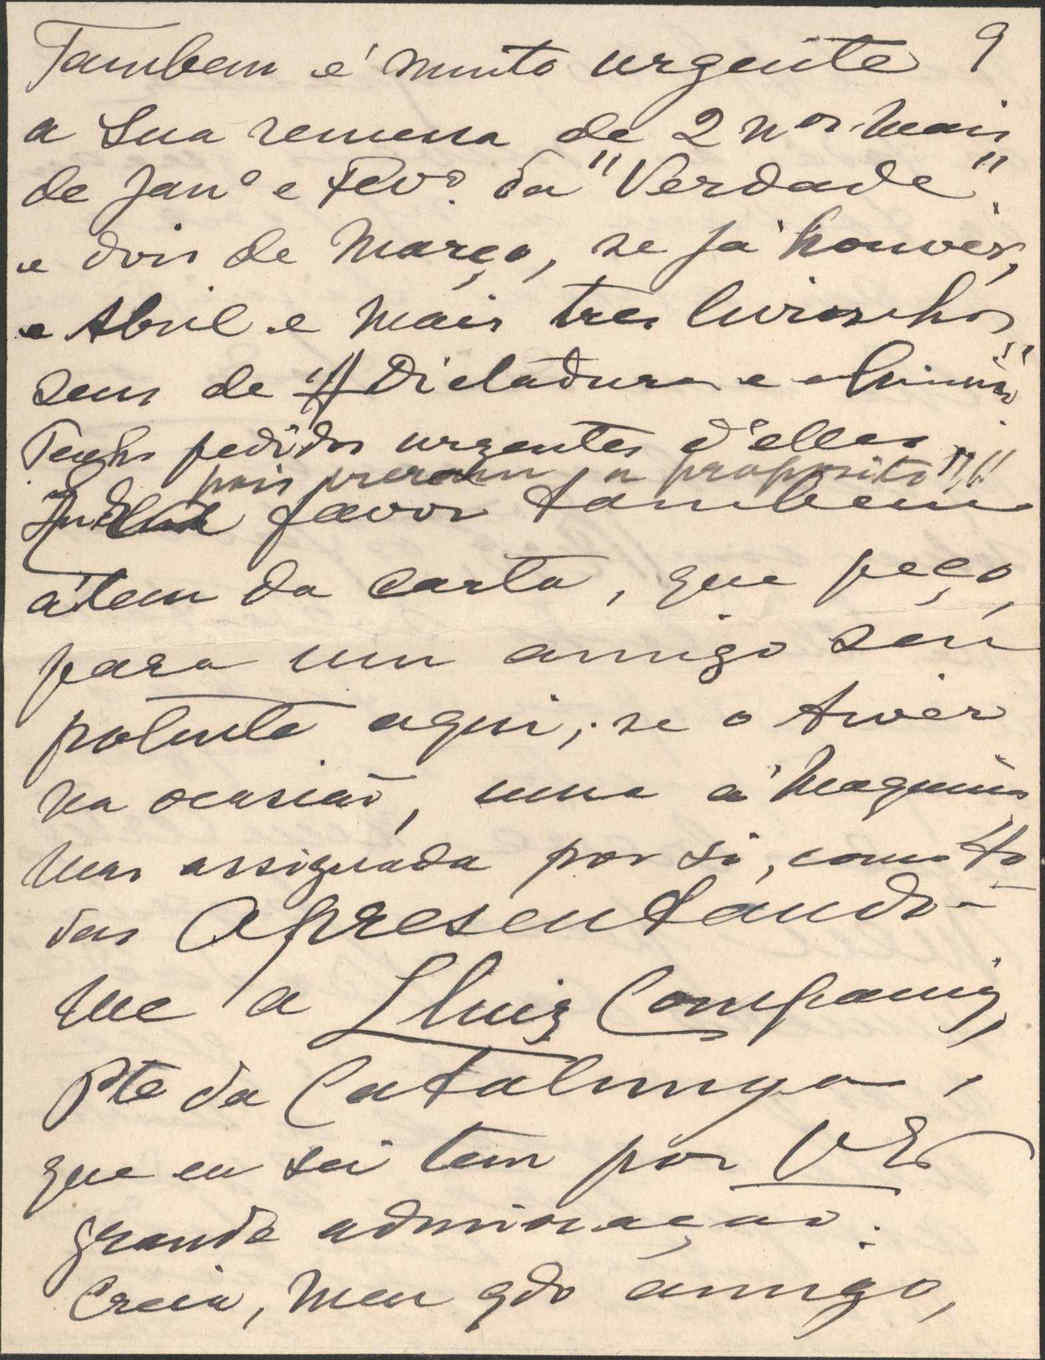 Tambem é muito urgente 9
a Sua remessa de 2 nos mais
de Janº e Fevº. da "Verdade"
e dois de Março, se já houvér,
e Abril e mais tres livrinhos
seus de "A Dictadura e
Tenho pedidos urgentes d'elles.
pois vieram a proposito"!!
favor tambem
álem da carta, que peço,
para um amigo seu
potente aqui; se o tivér
na ocasião, uma á maquina
mas assignada por si, como to
das Apresentando-
me a Lluiz Companis,
Pte da Catalunya,
que eu sei tem por V E
grande admiração.
Creia, meu qdo amigo,